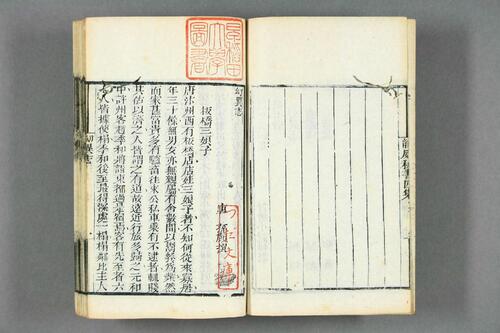 龍威秘書四集
早稻田大學圖書
幻異志
唐 孫頠撰
板橋三娘子
唐汴州西有板橋店店娃三娘子者不知何從來寡居
年三十餘無男女亦無親屬有舍數間以鬻餐為業然
而家甚富貴多有驢畜往來公私車乘有不逮者輒賤
其估以濟之人皆謂之有道故遠近行旅多歸之元和
中許州客趙季和將詣東都過是宿焉客有先至者六
七人皆據便榻季和後至最得深處一榻榻鄰比主人
幻異志